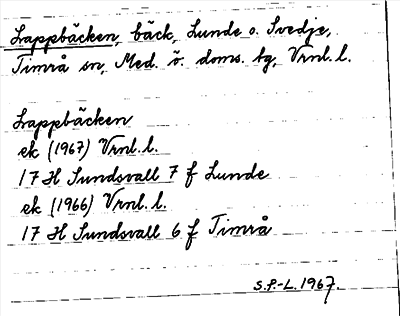 Lappbäcken, bäck, Lunde o. Svedje,
Timrå sn, Med. ö. doms. bg, Vrnl. l.
Lappbäcken
ek (1967) Vrnl. l.
17 H Sundsvall 7 f Lunde
ek (1966) Vrnl. l.
17 H Sundsvall 6 f Timrå
S.P-L. 1967.